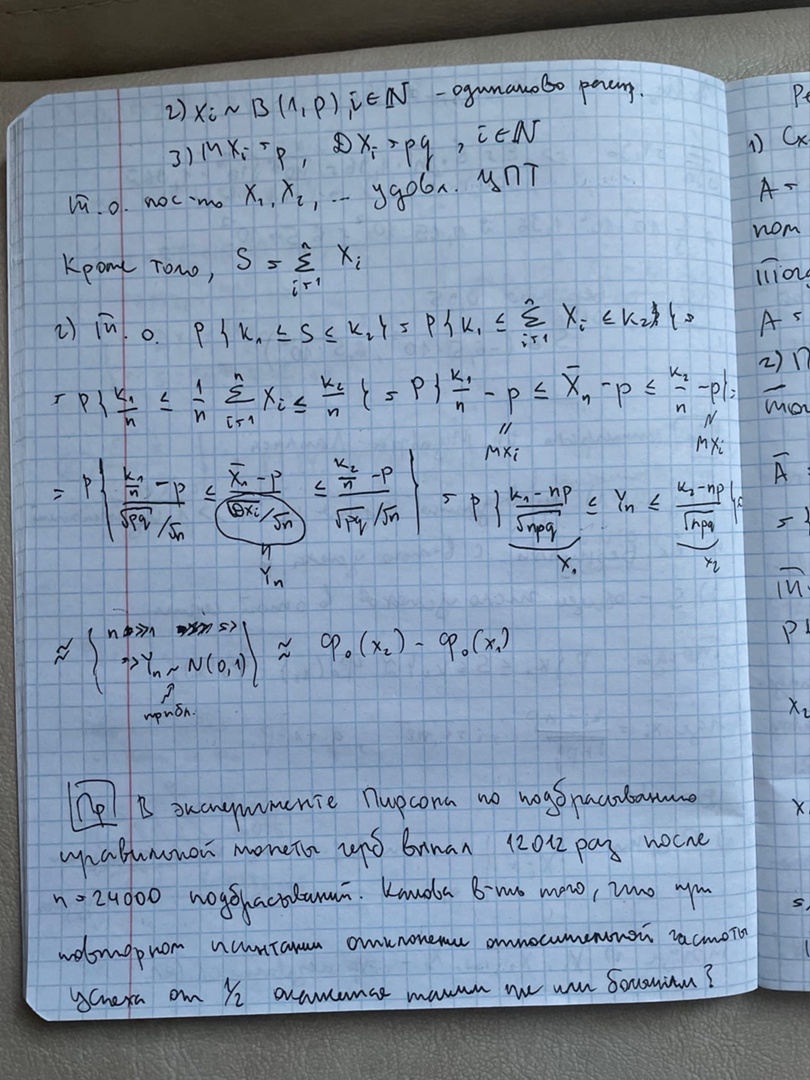 2) Xi ~ B(1, p), i ∈ ℕ – одинаково распр.
3) MXi = p, DXi = pq, i ∈ ℕ
Т. о. посл-ть X₁, X₂, ... удовл. ЦПТ
Кроме того, S = Σᵢ₌₁ⁿ Xi
2) Т. о. P{k₁ ≤ S ≤ k₂} = P{k₁ ≤ Σᵢ₌₁ⁿ Xi ≤ k₂} =
= P{k₁/n ≤ 1/n Σᵢ₌₁ⁿ Xi ≤ k₂/n} = P{k₁/n – p ≤ X̄n – p ≤ k₂/n – p} =
MXi MXi
= P{(k₁/n – p)/(√pq/√n) ≤ (X̄n – p)/(√DXi/√n) ≤ (k₂/n – p)/(√pq/√n)} = P{(k₁ – np)/√npq ≤ Yn ≤ (k₂ – np)/√npq} =
Yn x₁ x₂
≈ {n >> 1 => Yn ~ N(0,1)} ≈ Φ₀(x₂) – Φ₀(x₁)
прибл.
Пр В эксперименте Пирсона по подбрасыванию
правильной монеты герб выпал 12012 раз после
n = 24000 подбрасываний. Какова в-ть того, что при
повторном испытании отклонение относительной частоты
успеха от 1/2 окажется таким же или большим?
Ре
1) Сх
A =
пот
A =
2) П
Ā
=
x₂
x